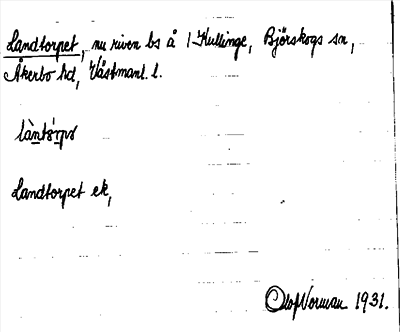 Landtorpet, nu riven bs å 1 Kullinge, Björskogs sn,
Åkerbo hd, Västmanl. l.
làntórpə
Landtorpet ek,
Olof Norman 1931.